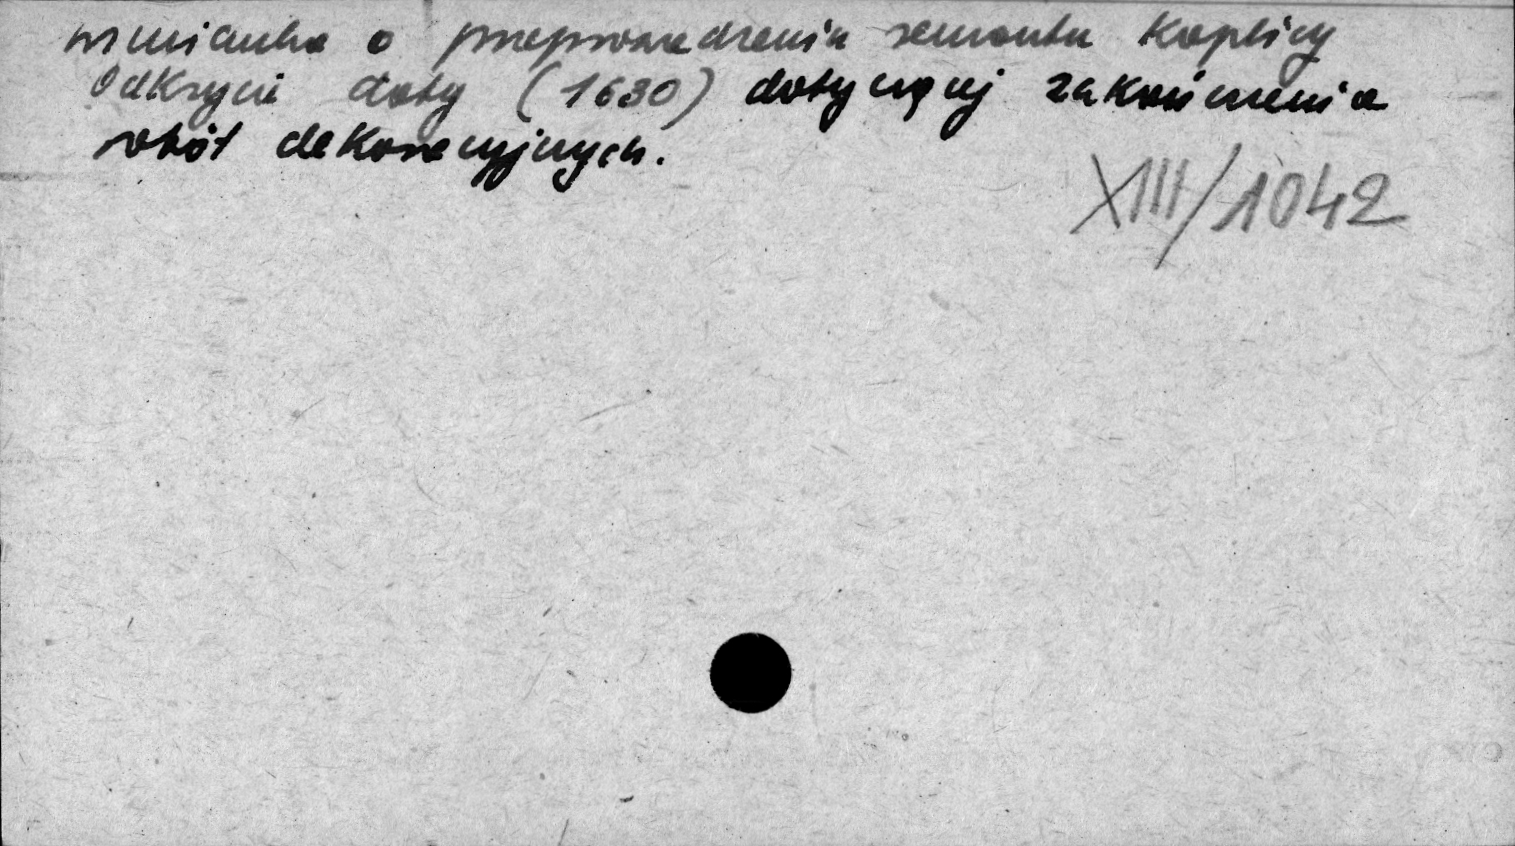 wzmianka o przeprowadzeniu remontu Kaplicy
Odkrycie daty (1630) dotyczącej zakończenia
robót dekoracyjnych.
XIII/1042